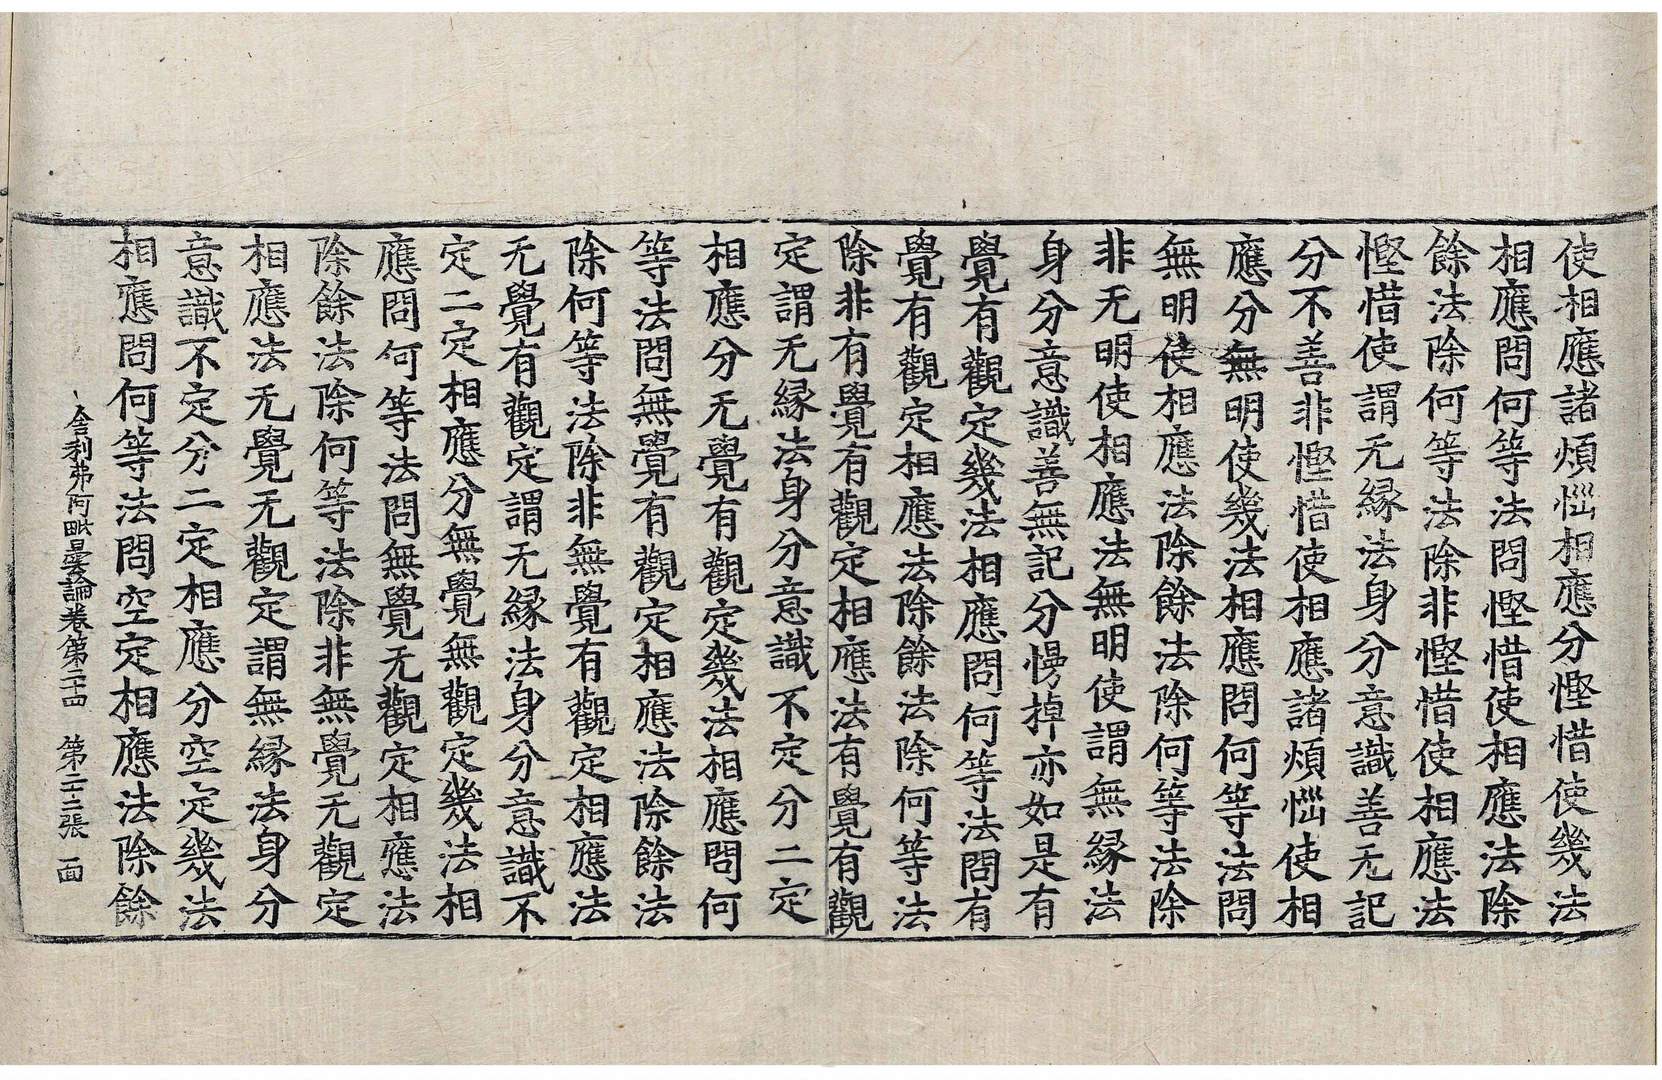 使相應諸煩惱相應分慳惜使幾法
相應問何等法問慳惜使相應法除
餘法除何等法除非慳惜使相應法
慳惜使謂无緣法身分意識善无記
分不善非慳惜使相應諸煩惱使相
應分無明使幾法相應問何等法問
無明使相應法除餘法除何等法除
非无明使相應法無明使謂無緣法
身分意識善無記分慢掉亦如是有
覺有觀定幾法相應問何等法問有
覺有觀定相應法除餘法除何等法
除非有覺有觀定相應法有覺有觀
定謂无緣法身分意識不定分二定
相應分无覺有觀定幾法相應問何
等法問無覺有觀定相應法除餘法
除何等法除非無覺有觀定相應法
无覺有觀定謂无緣法身分意識不
定二定相應分無覺無觀定幾法相
應問何等法問無覺无觀定相應法
除餘法除何等法除非無覺无觀定
相應法无覺无觀定謂無緣法身分
意識不定分二定相應分空定幾法
相應問何等法問空定相應法除餘
舍利弗阿毗曇論卷第二十四 第二十二張 面